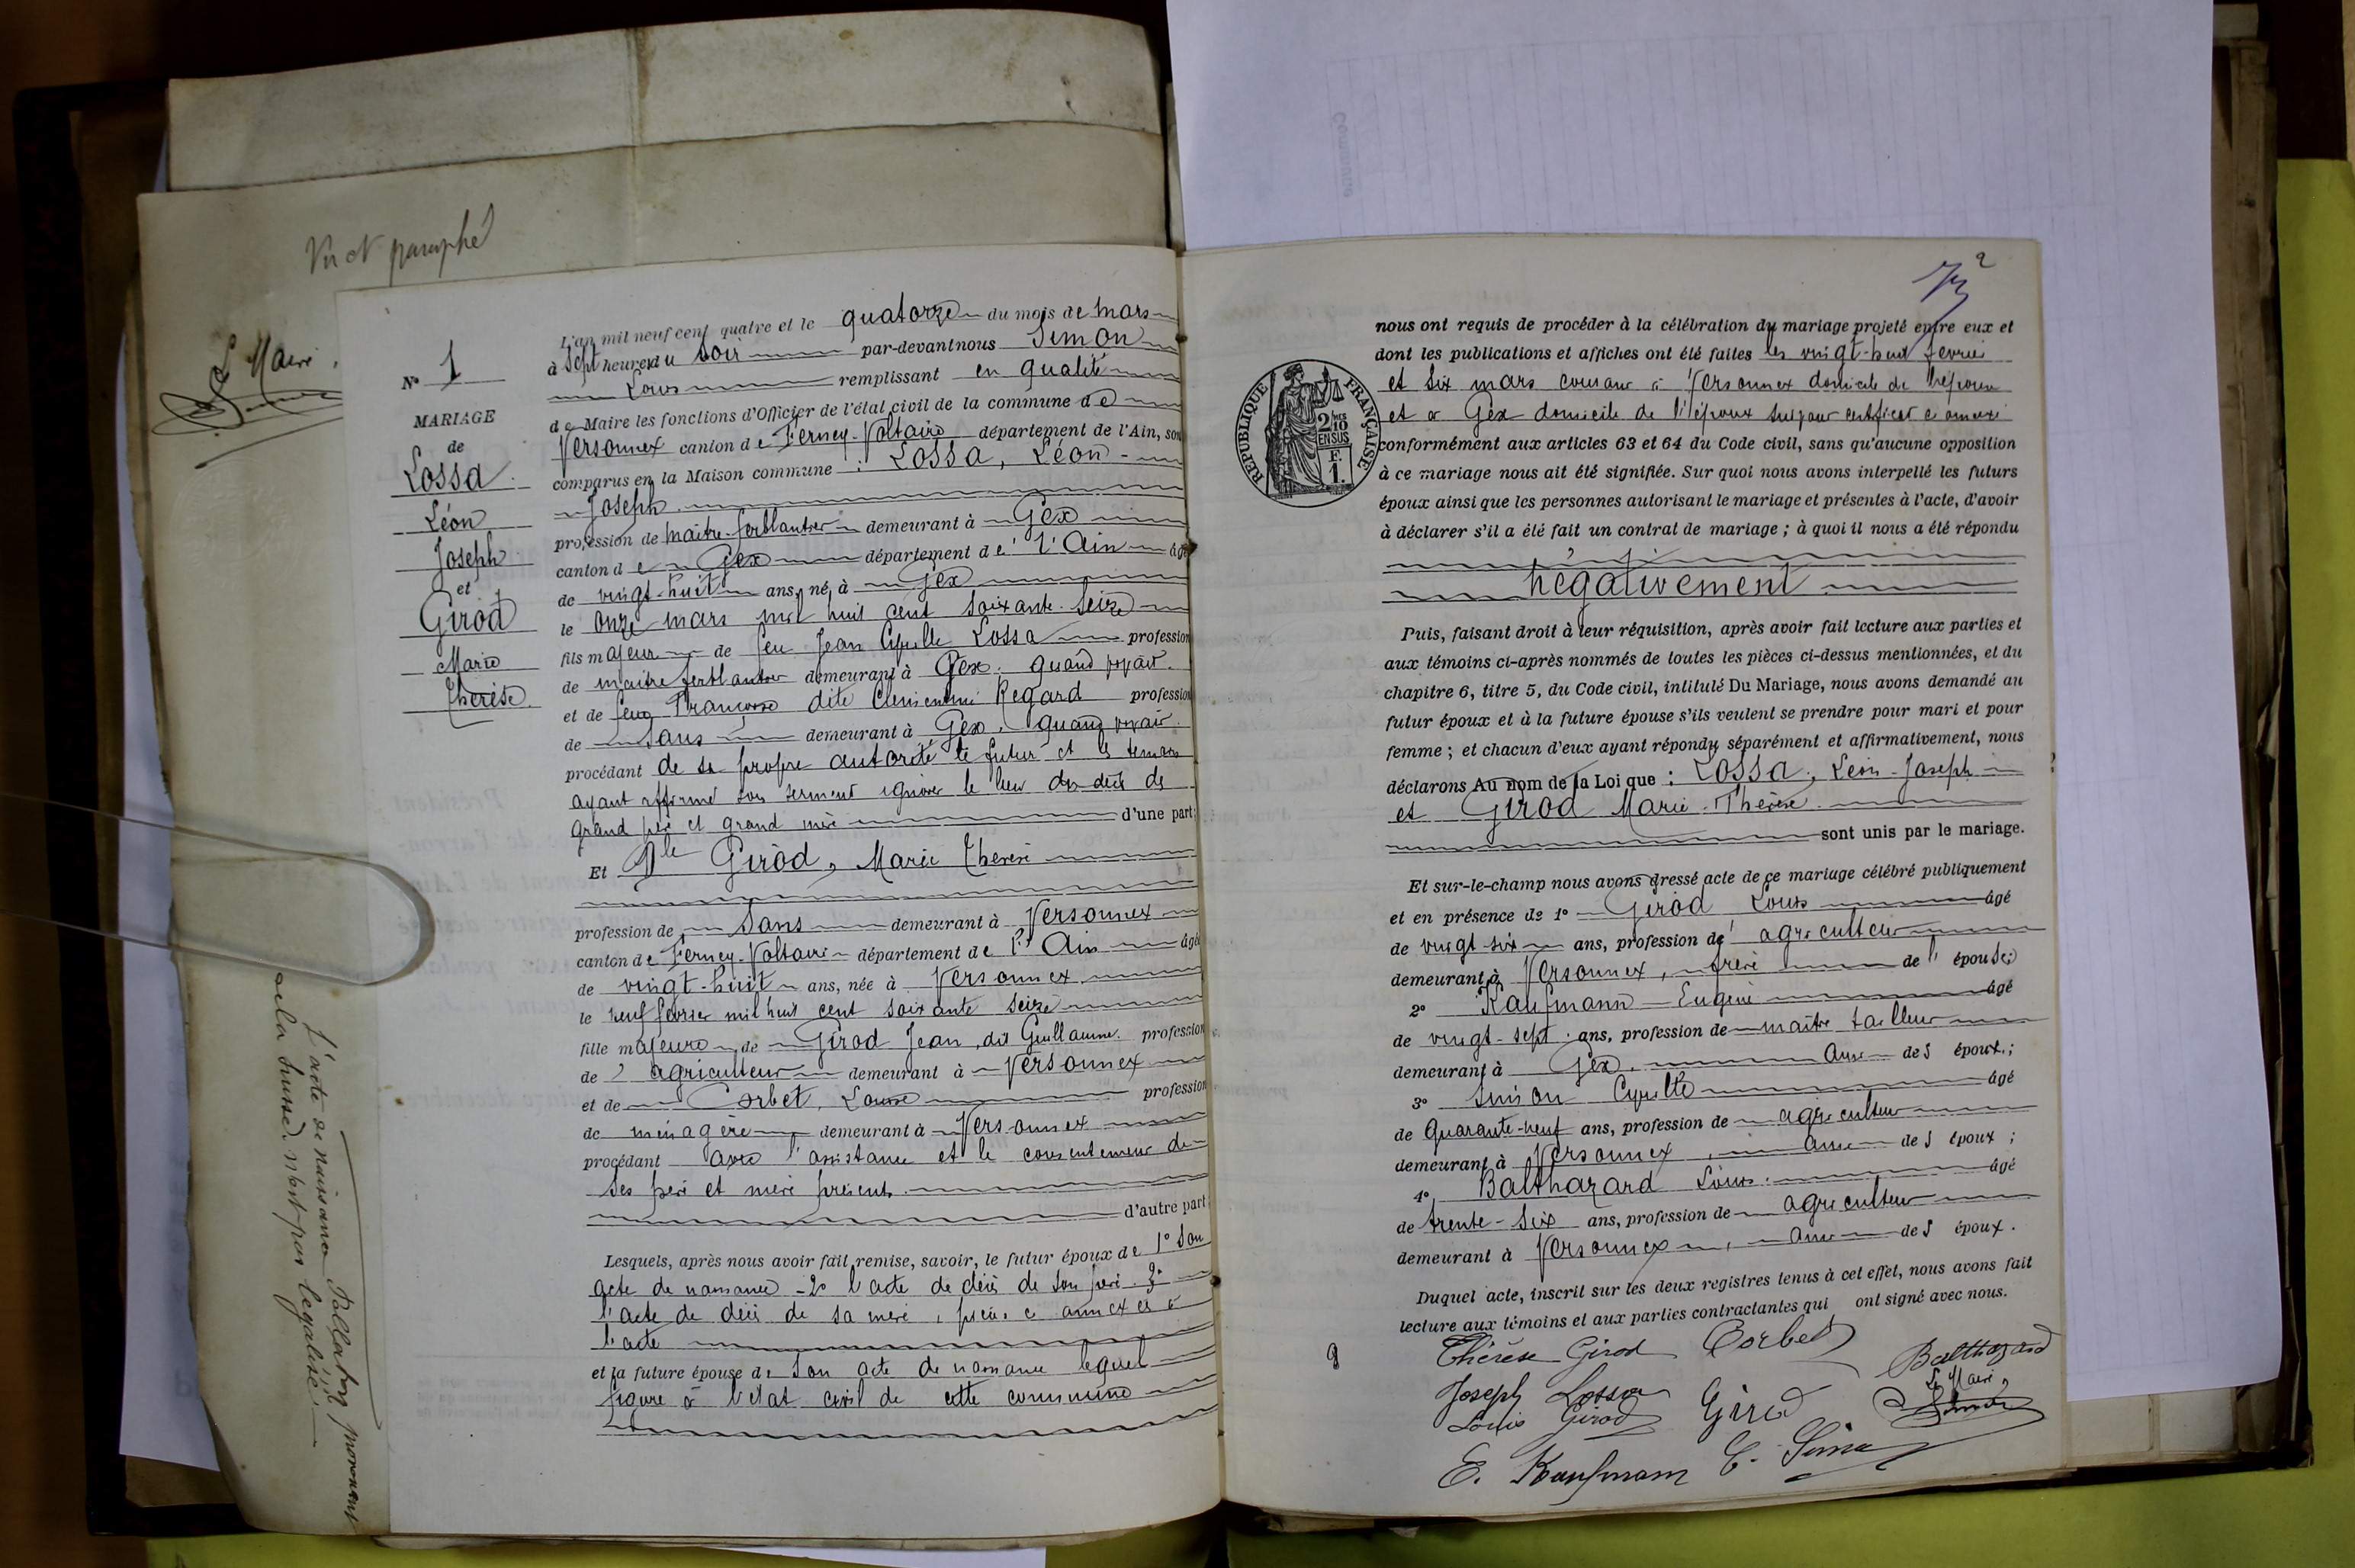 Vu et paraphé
Le Maire,
L'acte de naissance
de la future n'est pas légalisé.
N° 1
MARIAGE
de
Lossa
Léon
Joseph
et
Girod
Marie
Thérèse
L'an mil neuf cent quatre et le quatorze du mois de mars
à sept heures du soir par-devant nous Simon
Louis remplissant en qualité
de Maire les fonctions d'Officier de l'état civil de la commune de
Versonnex canton de Ferney-Voltaire département de l'Ain, sont
comparus en la Maison commune : Lossa, Léon-
Joseph
profession de maître-ferblantier demeurant à Gex
canton de Gex département de l'Ain âgé
de vingt-huit ans, né à Gex
le onze mars mil huit cent soixante-seize
fils majeur de feu Jean Cyrille Lossa profession
de maître ferblantier demeurant à Gex. quand vivait.
et de feue Françoise dite Clémentine Regard profession
de sans demeurant à Gex, quand vivait.
procédant de sa propre autorité le futur et les témoins
ayant affirmé sous serment ignorer le lieu du décès de
grand père et grand mère d'une part;
Et Dlle Girod, Marie Thérèse
profession de sans demeurant à Versonnex
canton de Ferney-Voltaire département de l'Ain âgée
de vingt-huit ans, née à Versonnex
le neuf février mil huit cent soixante seize
fille majeure de Girod Jean, dit Guillaume. profession
de agriculteur demeurant à Versonnex
et de Corbet, Louise profession
de ménagère demeurant à Versonnex
procédant avec l'assistance et le consentement de
ses père et mère présents.
d'autre part
Lesquels, après nous avoir fait remise, savoir, le futur époux de 1° son
acte de naissance - 2° l'acte de décès de son père. 3°
l'acte de décès de sa mère, pièces annexées à
l'acte
et la future épouse de son acte de naissance lequel
figure à l'état civil de cette commune
2
nous ont requis de procéder à la célébration du mariage projeté entre eux et
dont les publications et affiches ont été faites les vingt-huit février
et six mars courant à Versonnex domicile de l'épouse
et à Gex domicile de l'époux suivant certificat ci annexé
RÉPUBLIQUE FRANÇAISE
2/10 EN SUS
F. 1.
conformément aux articles 63 et 64 du Code civil, sans qu'aucune opposition
à ce mariage nous ait été signifiée. Sur quoi nous avons interpellé les futurs
époux ainsi que les personnes autorisant le mariage et présentes à l'acte, d'avoir
à déclarer s'il a été fait un contrat de mariage ; à quoi il nous a été répondu
négativement
Puis, faisant droit à leur réquisition, après avoir fait lecture aux parties et
aux témoins ci-après nommés de toutes les pièces ci-dessus mentionnées, et du
chapitre 6, titre 5, du Code civil, intitulé Du Mariage, nous avons demandé au
futur époux et à la future épouse s'ils veulent se prendre pour mari et pour
femme ; et chacun d'eux ayant répondu séparément et affirmativement, nous
déclarons Au nom de la Loi que : Lossa, Léon-Joseph
et Girod Marie-Thérèse
sont unis par le mariage.
Et sur-le-champ nous avons dressé acte de ce mariage célébré publiquement
et en présence de 1° Girod Louis âgé
de vingt-six ans, profession de agriculteur
demeurant à Versonnex, frère de l'épouse;
2° Kaufmann Eugène âgé
de vingt-sept ans, profession de maître tailleur
demeurant à Gex, ami des époux ;
3° Simon Cyrille âgé
de Quarante-neuf ans, profession de agriculteur
demeurant à Versonnex, ami des époux ;
4° Balthazard Louis. âgé
de trente-six ans, profession de agriculteur
demeurant à Versonnex, ami des époux.
Duquel acte, inscrit sur les deux registres tenus à cet effet, nous avons fait
lecture aux témoins et aux parties contractantes qui ont signé avec nous.
Thérèse Girod Corbet Balthazard
Joseph Lossa Le Maire,
Louis Girod Girod Simon
E. Kaufmann C. Simon